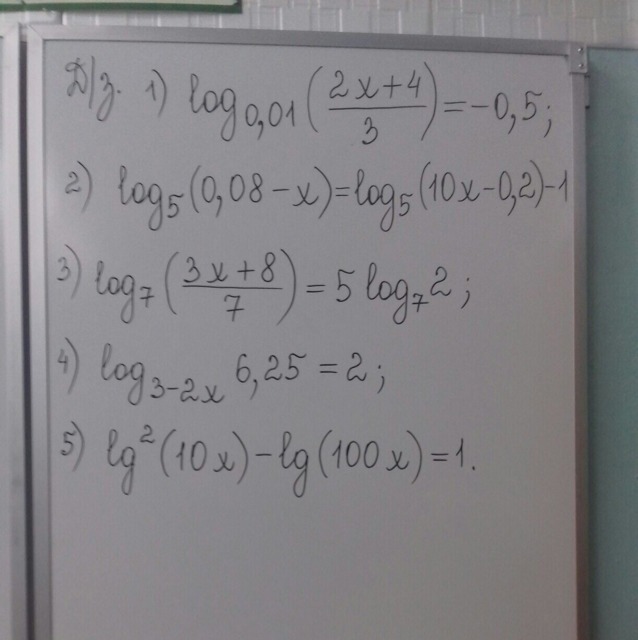 Д/з. 1) log₀,₀₁((2x+4)/3) = -0,5;
2) log₅(0,08-x)=log₅(10x-0,2)-1
3) log₇((3x+8)/7) = 5 log₇2;
4) log₃₋₂ₓ 6,25 = 2;
5) lg²(10x)-lg(100x)=1.